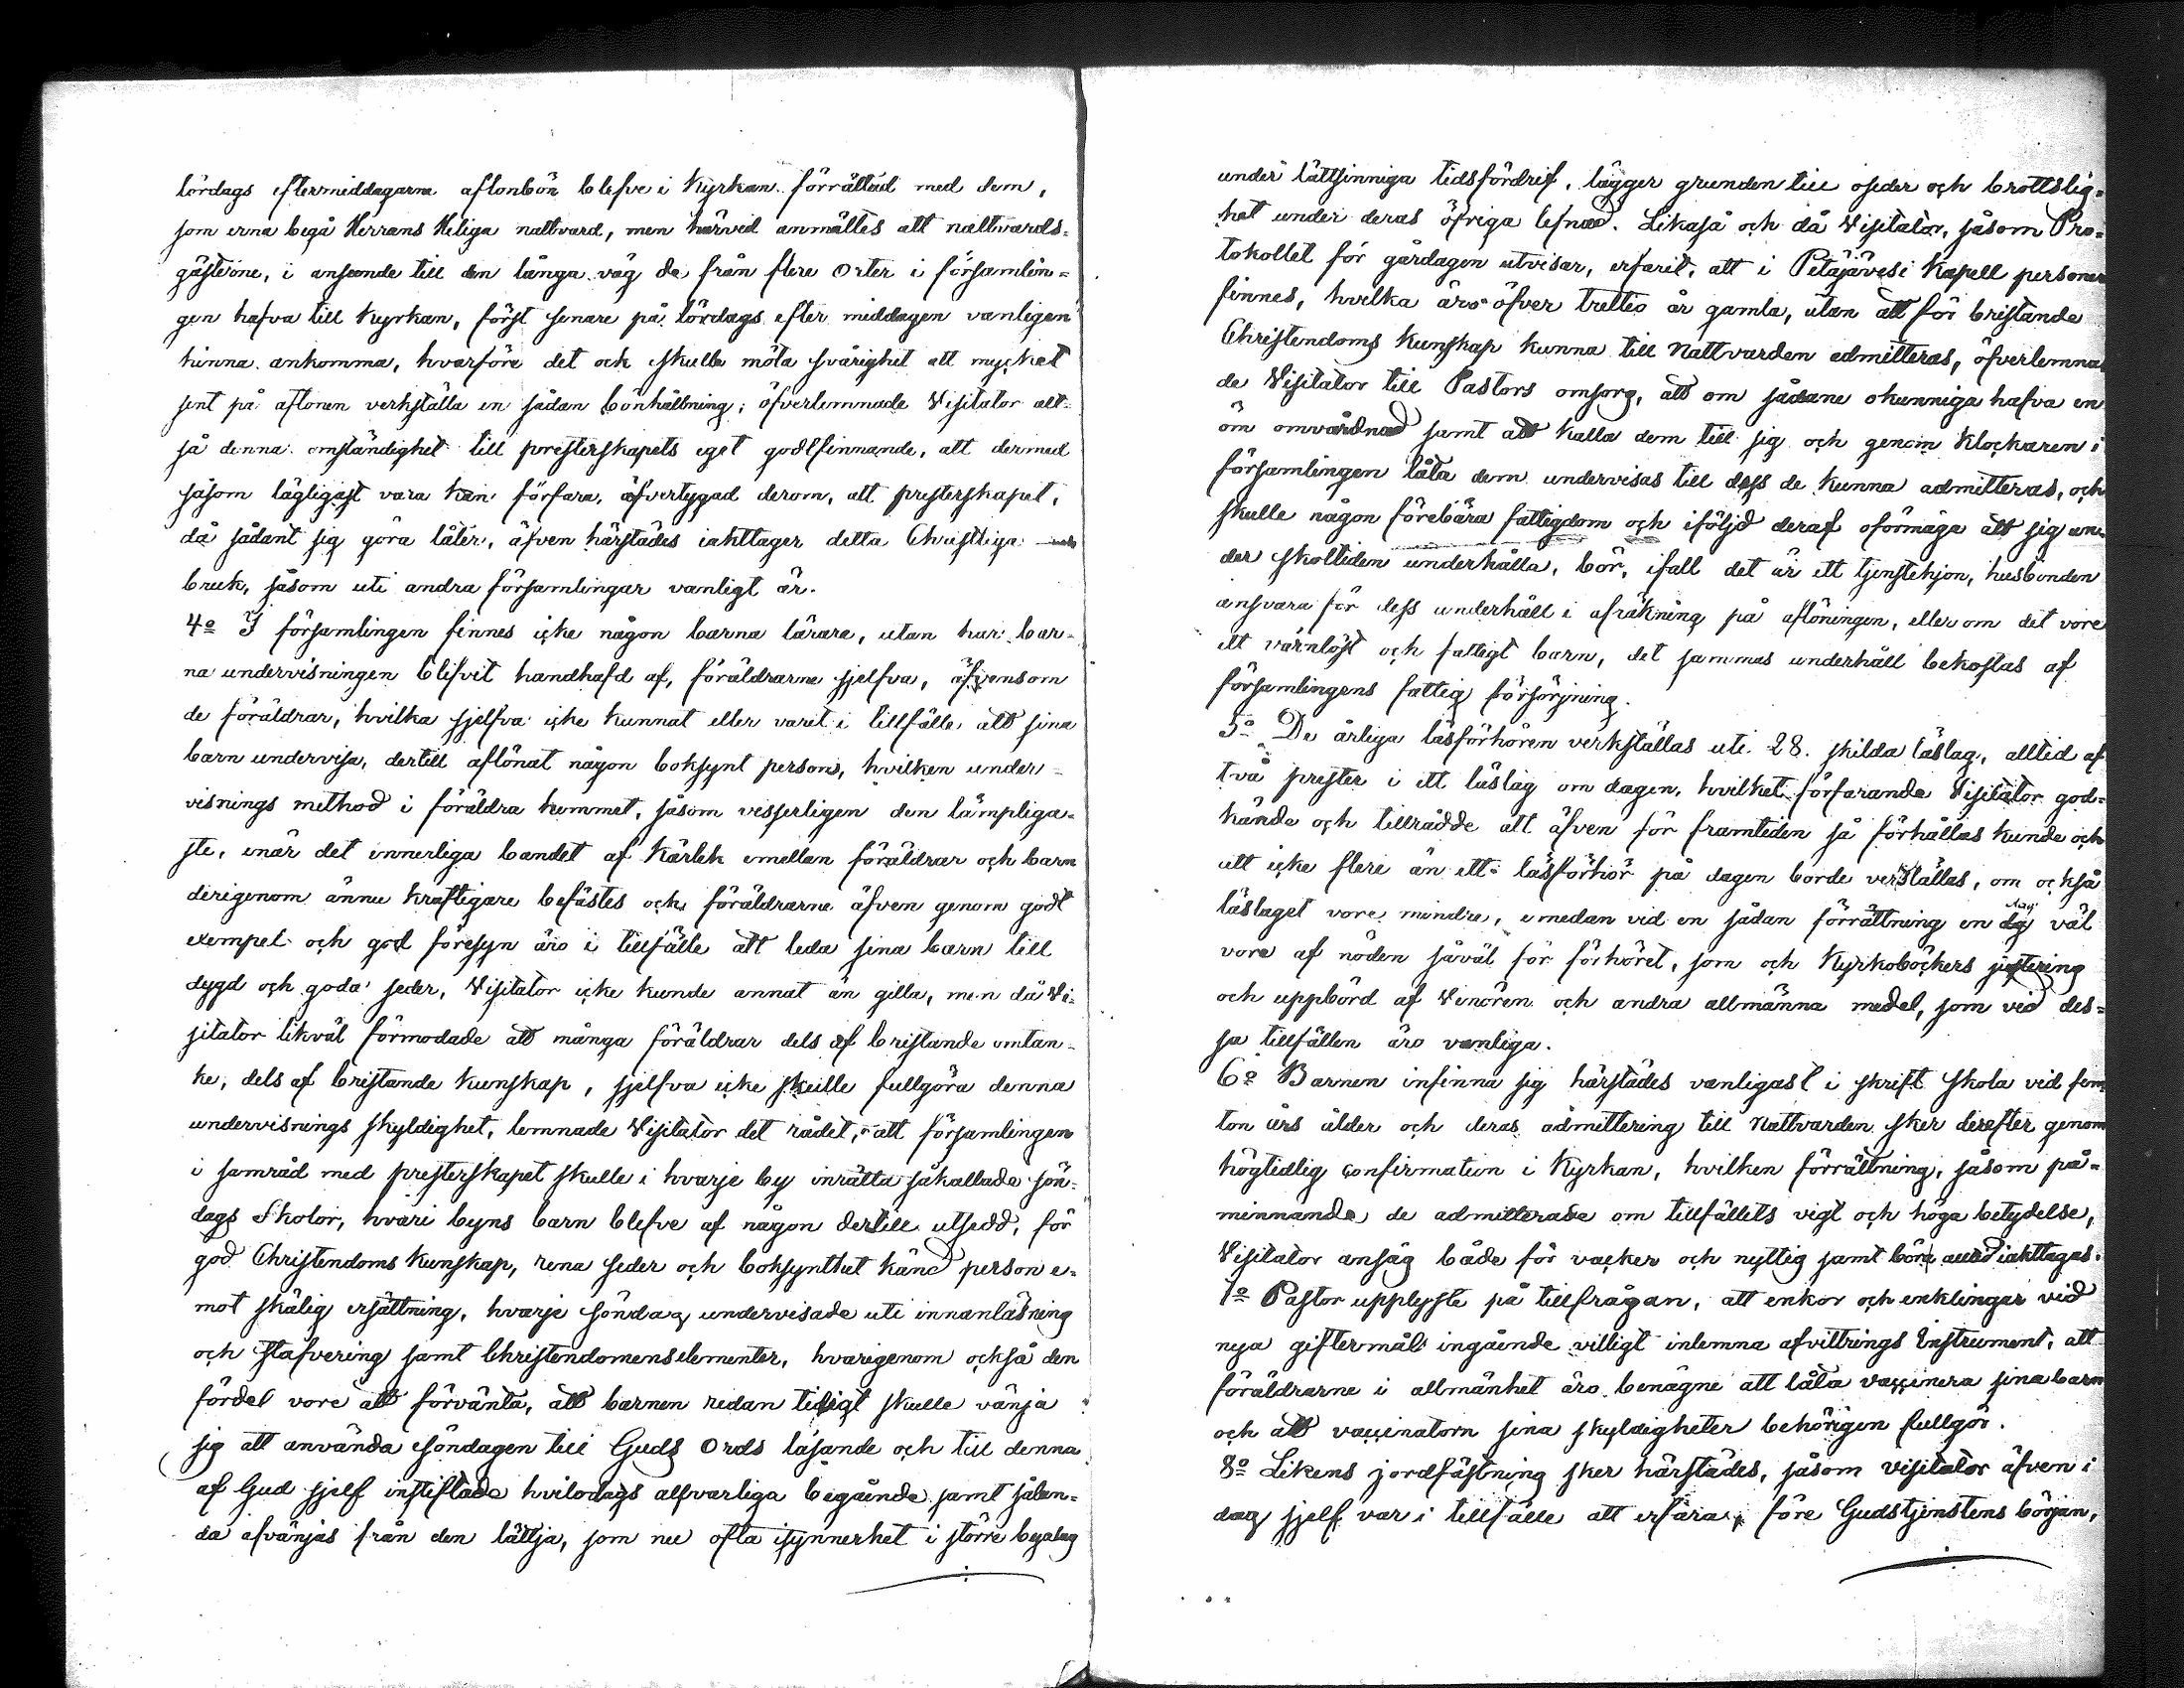 lördags eftermiddagarna aftonbön blefve i Kyrkan förrättad med dem,
som ernå begå Herrans Heliga nattvard, men härvid anmältes att nattvards-
gästerne, i anseende till den långa väg de från flere orter i församlin-
gen hafva till Kyrkan, först senare på lördags efter middagen vanligen
hinna ankomma, hvarföre det och skulle möta svårighet att mycket
sent på aftonen verkställa en sådan bönhållning; öfverlemnade Visitator alt-
så denna omständighet till presterskapets eget godtfinnande, att dermed
såsom lägligast vara kan förfara, öfvertygad derom, att presterskapet,
då sådant sig göra låter, äfven härstädes iakttager detta Christliga
bruk, såsom uti andra församlingar vanligt är.
4o I församlingen finnes icke någon barna lärare, utan hur bar-
na undervisningen blifvit handhafd af föräldrarne sjelfva, äfvensom
de föräldrar, hvilka sjelfva icke kunnat eller varit i tillfälle att sina
barn undervisa, dertill aflönat någon boksynt person, hvilken under-
visnings method i föräldra hemmet, såsom visserligen den lämpliga-
ste, enär det innerliga bandet af Kärlek emellan föräldrar och barn
derigenom ännu kraftigare befästes och föräldrarne äfven genom godt
exempel och god föresyn äro i tillfälle att leda sina barn till
dygd och goda seder, Visitator icke kunde annat än gilla, men då Vi-
sitator likväl förmodade att många föräldrar dels af bristande omtan-
ke, dels af bristande kunskap, sjelfva icke skulle fullgöra denna
undervisnings skyldighet, lemnade Visitator det rådet, att församlingen
i samråd med presterskapet skulle i hvarje by inrätta såkallade sön-
dags Skolor, hvari byns barn blefve af någon dertill utsedd, för
god Christendoms Kunskap, rena seder och boksynthet känd person e-
mot skälig ersättning, hvarje söndag undervisade uti innanläsning
och stafvering samt Christendomens elementer, hvarigenom också den
fördel vore att förvänta, att barnen redan tidigt skulle vänja
sig att använda söndagen till Guds Ords läsande och till denna
af Gud sjelf instiftade hvilodags alfvarliga begående samt sålun-
da afvänjas från den lättja, som nu ofta isynnerhet i större byalag
under lättsinniga tidsfördrif, lägger grunden till oseder och brottslig-
het under deras öfriga lefnad. Likaså och då Visitator, såsom Pro-
tokollet för gårdagen utvisar, erfarit, att i Petäjävesi Kapell personer
finnes, hvilka äro öfver trettio år gamla, utan att för bristande
Christendoms Kunskap kunna till Nattvarden admitteras, öfverlemna
de Visitator till Pastors omsorg, att om sådane okunniga hafva en
öm omvårdnad samt att kalla dem till sig och genom Klockaren i
församlingen låta dem undervisas till dess de kunna admitteras, och
skulle någon förebära fattigdom och iföljd deraf oförmåga att sig un-
der skoltiden underhålla, bör, ifall det är ett tjenstehjon, husbonden
ansvara för dess underhåll i afräkning på aflöningen, eller om det vore
ett värnlöst och fattigt barn, det sammas underhåll bekostas af
församlingens fattig försörjning.
5o De årliga läsförhören verkställas uti 28. skilda läslag, alltid af
två prester i ett läslag om dagen, hvilket förfarande Visitator god-
kände och tillrådde att äfven för framtiden så förhållas kunde och
att icke flere än ett läsförhör på dagen borde verkställas, om också
läslaget vore mindre, emedan vid en sådan förrättning en dag väl
vore af nöden såväl för förhöret, som och Kyrkoböckers justering
och uppbörd af Venören och andra allmänna medel, som vid des-
sa tillfällen äro vanliga.
6o Barnen infinna sig härstädes vanligast i skrift skola vid fem
ton års ålder och deras admittering till Nattvarden sker derefter genom
högtidlig confirmation i Kyrkan, hvilken förrättning, såsom på-
minnande de admitterade om tillfällets vigt och höga betydelse,
Visitator ansåg både för vacker och nyttig samt böra alltid iakttagas.
7o Pastor upplyste på tillfrågan, att enkor och enklingar vid
nya giftermåls ingående villigt inlemna afvittrings Instrument, att
föräldrarne i allmänhet äro benägne att låta vaccinera sina barn
och att vaccinatorn sina skyldigheter behörigen fullgör.
8o Likens jordfästning sker härstädes, såsom visitator äfven i
dag sjelf var i tillfälle att erfara, före Gudstjenstens början,